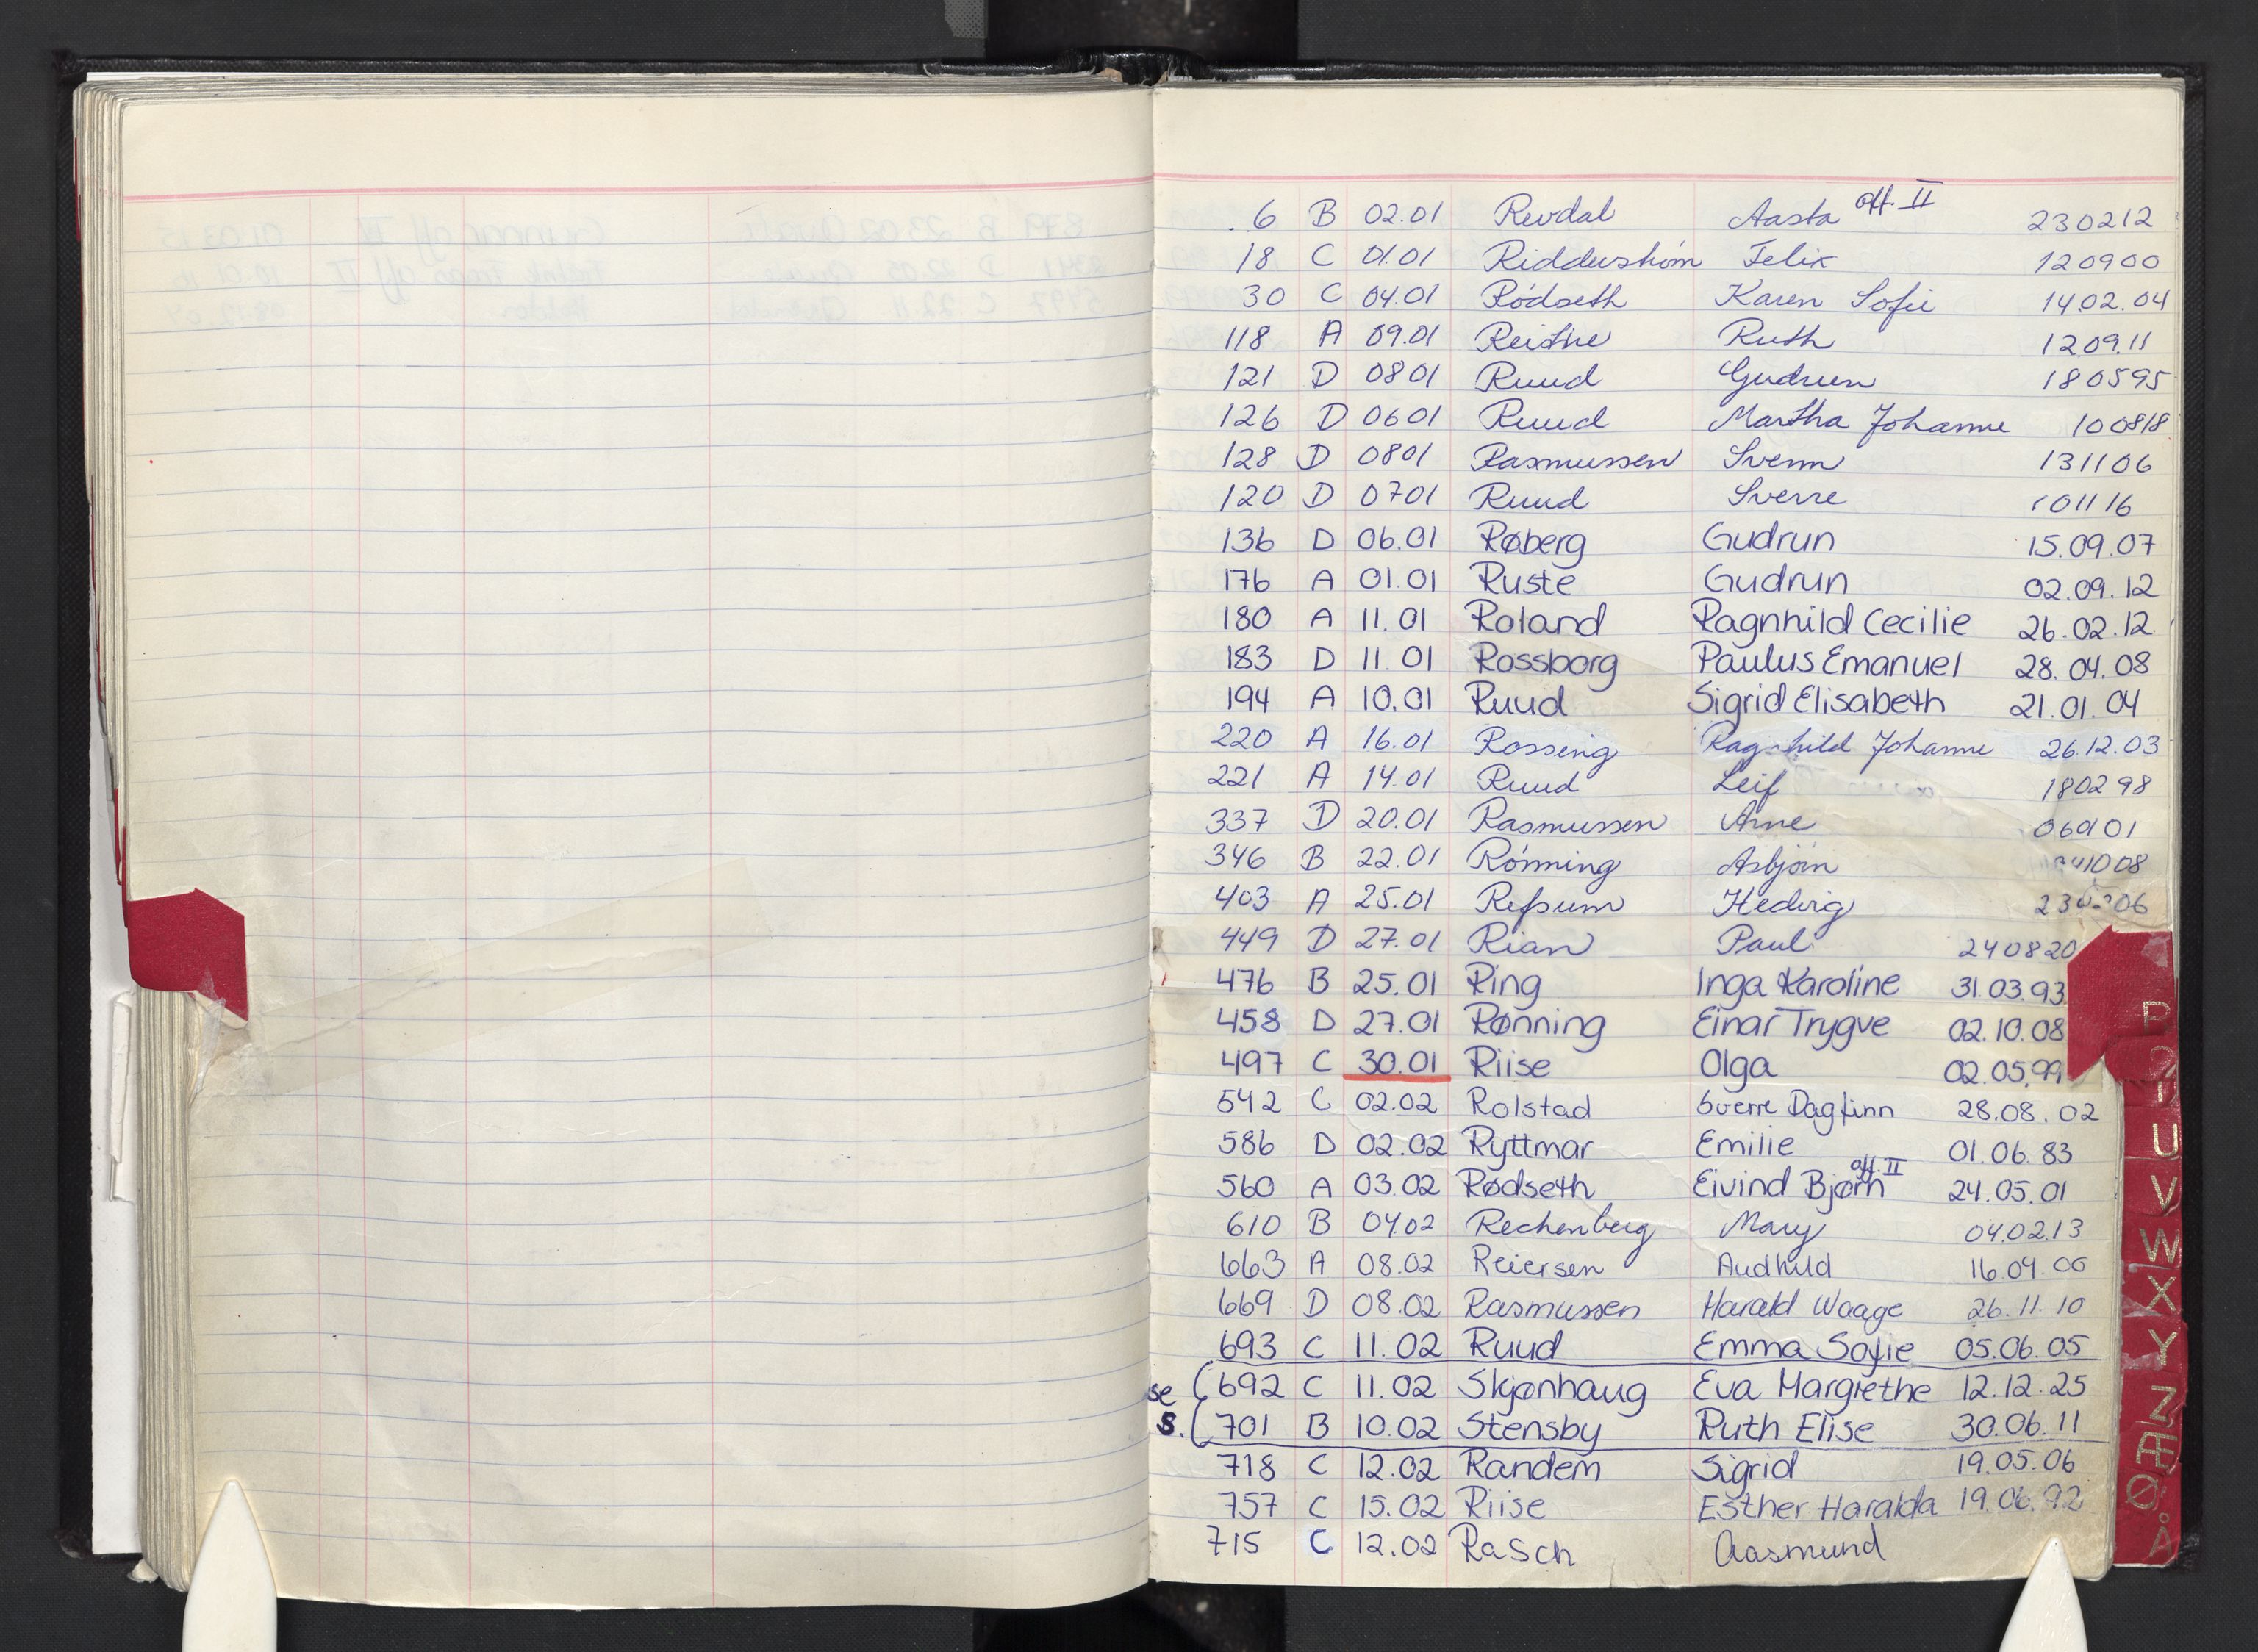 6 B 02.01 Revdal Aasta off. II 230212
18 C 01.01 Ridderstrøm Felix 120900
30 C 04.01 Rødseth Karen Sofie 14.02.04
118 A 09.01 Reithe Ruth 1209.11
121 D 0801 Ruud Gudrun 180595
126 D 0601 Ruud Martha Johanne 100818
128 D 0801 Rasmussen Svenn 131106
120 D 0701 Ruud Sverre 101116
136 D 06.01 Røberg Gudrun 15.09.07
176 A 01.01 Ruste Gudrun 02.09.12
180 A 11.01 Roland Ragnhild Cecilie 26.02.12
183 D 11.01 Rossborg Paulus Emanuel 28.04.08
194 A 10.01 Ruud Sigrid Elisabeth 21.01.04
220 A 16.01 Rossing Ragnhild Johanne 26.12.03
221 A 14.01 Ruud Leif 180298
337 D 20.01 Rasmussen Arne 060101
346 B 22.01 Rønning Asbjørn
403 A 25.01 Refsum Hedvig
449 D 27.01 Rian Paul 240820
476 B 25.01 Ring Inga Karoline 31.03.93
458 D 27.01 Rønning Einar Trygve 02.10.08
497 C 30.01 Riise Olga 02.05.99
542 C 02.02 Rolstad Sverre Dagfinn 28.08.02
586 D 02.02 Ryttmar Emilie 01.06.83
560 A 03.02 Rødseth Eivind Bjørn off. II 24.05.01
610 B 04.02 Rechenberg Mary 04.02.13
663 A 08.02 Reiersen Audhild 16.09.06
669 D 08.02 Rasmussen Harald Waage 26.11.10
693 C 11.02 Ruud Emma Sofie 05.06.05
se (692 C 11.02 Skjønhaug Eva Margrethe 12.12.25
S. (701 B 10.02 Stensby Ruth Elise 30.06.11
718 C 12.02 Randem Sigrid 19.05.06
757 C 15.02 Riise Esther Haralda 19.06.92
715 C 12.02 Rasch Aasmund
U
V
W
X
Y
Z
Æ
Ø
Å